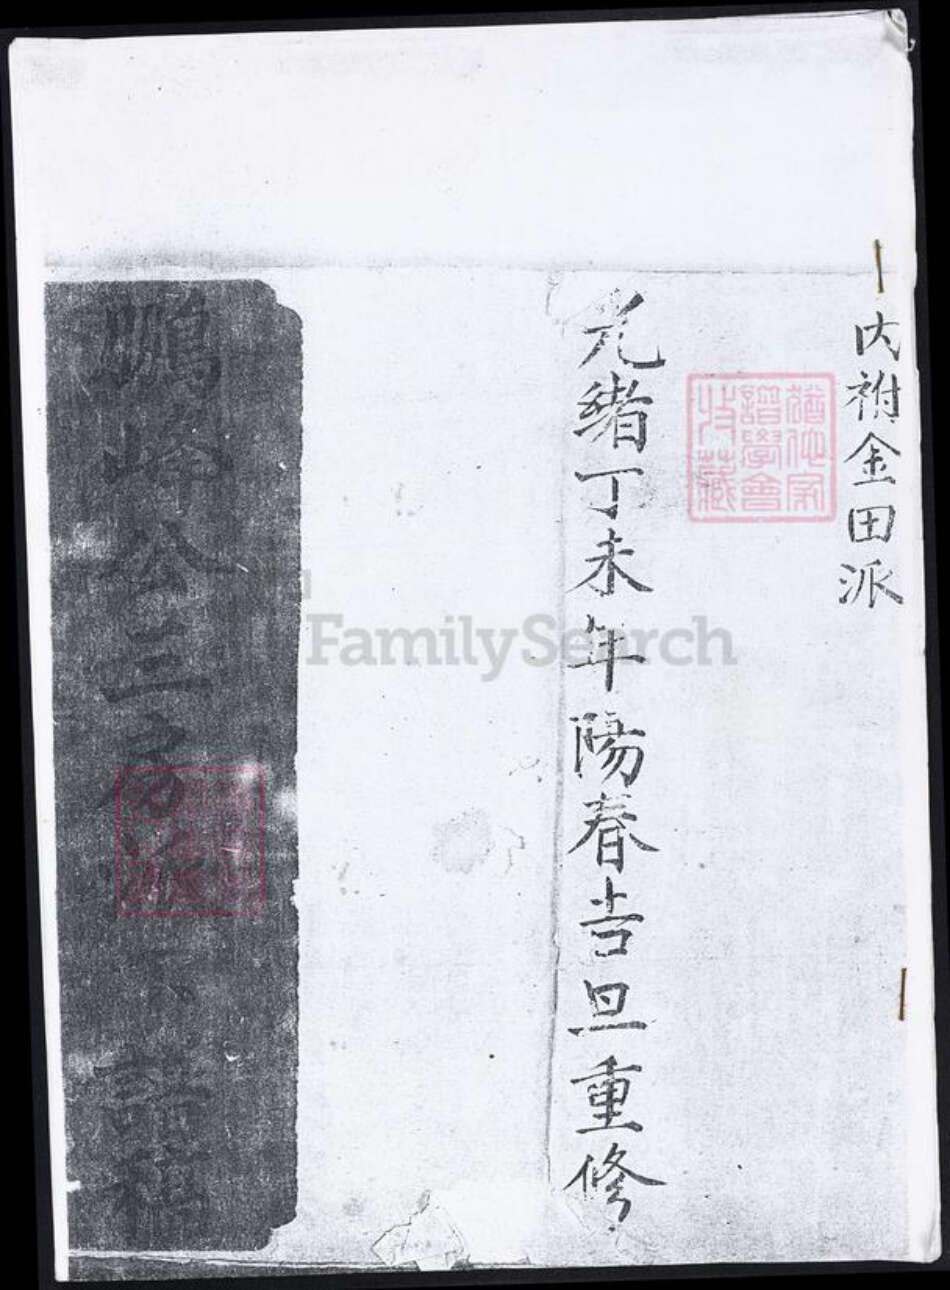 内祔金田派
猶他家譜學會收藏
光緒丁未年陽春吉旦重修
鵬峰公三房派下譜稿
FamilySearch